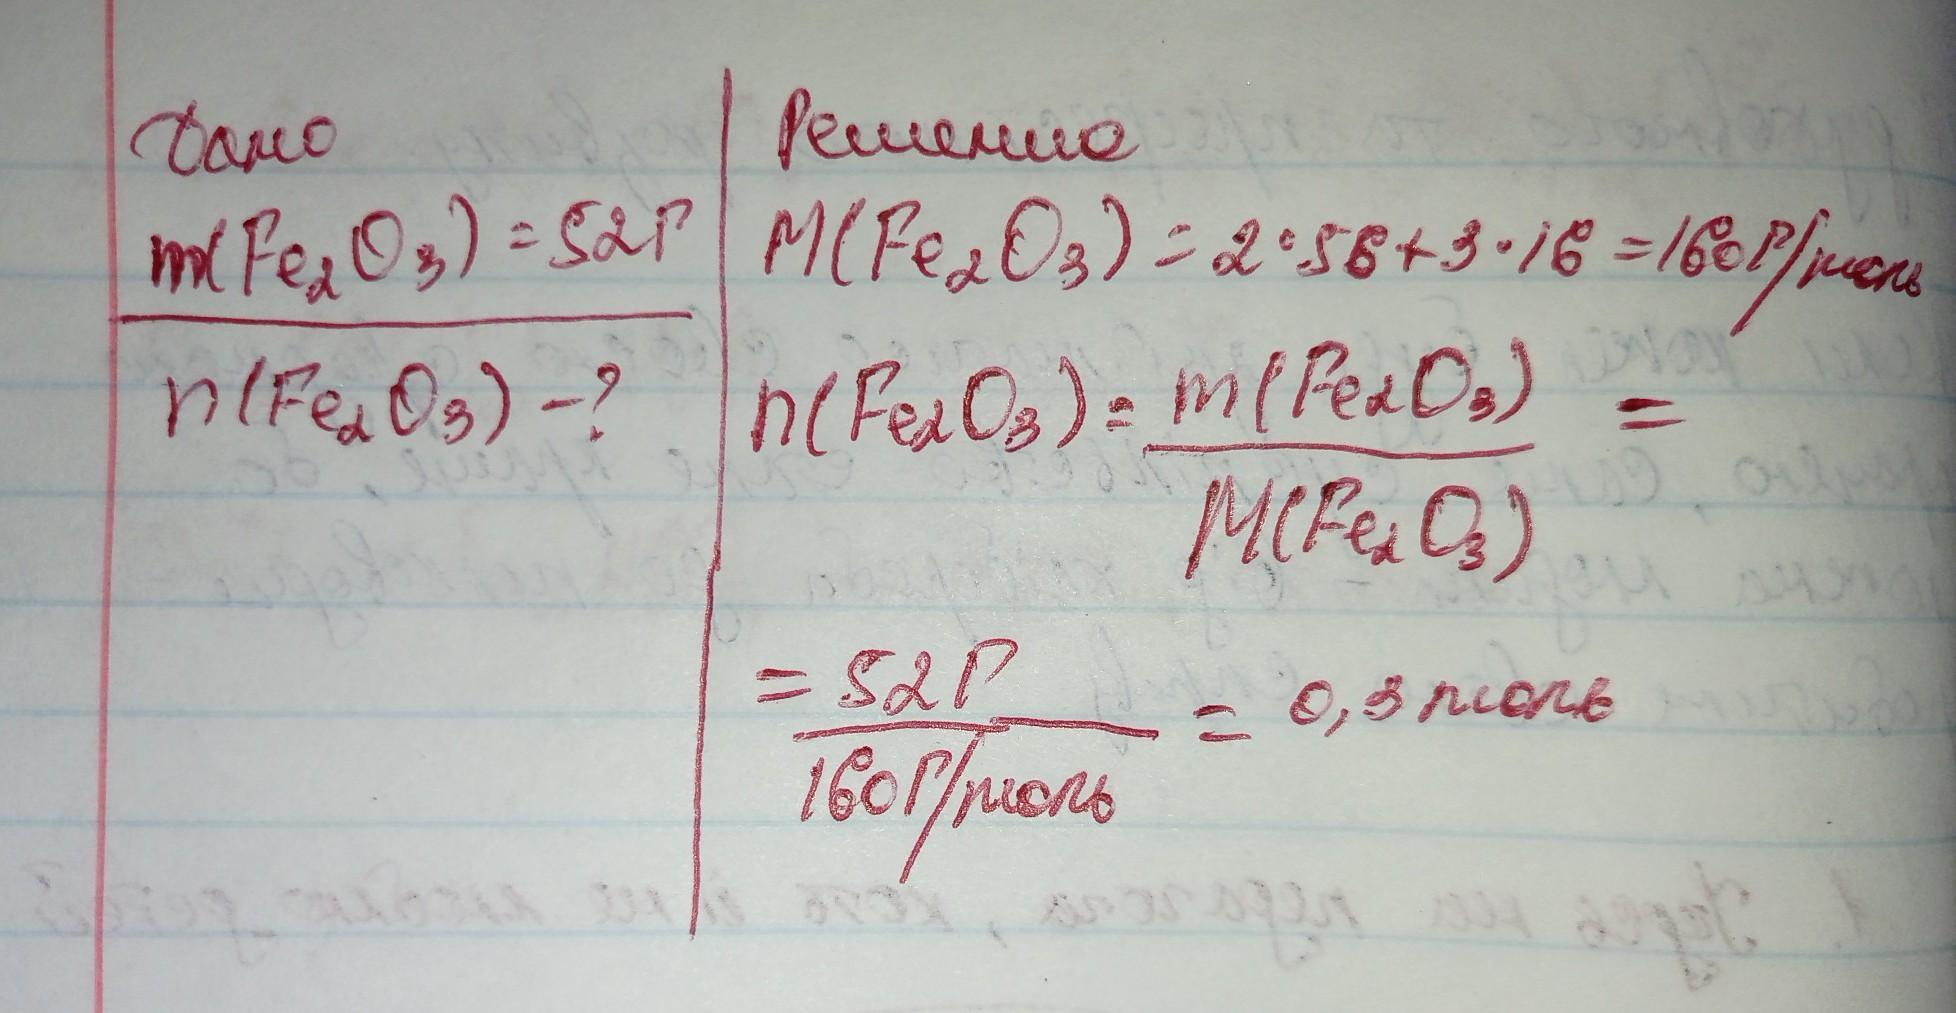 Дано
m(Fe₂O₃) = 52г
n(Fe₂O₃) - ?
Решение
M(Fe₂O₃) = 2·56+3·16 = 160г/моль
n(Fe₂O₃) = m(Fe₂O₃) =
M(Fe₂O₃)
= 52г = 0,3 моль
160г/моль